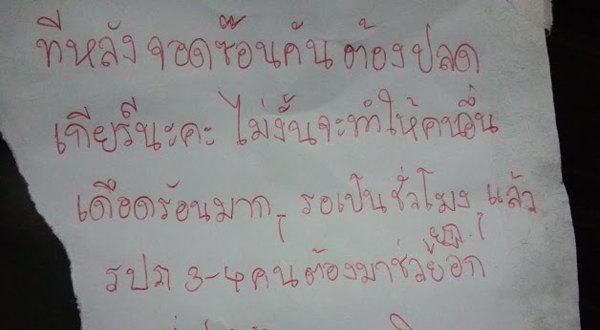 ทีหลังจอดซ๊อนคัน ต้องปลด
เกียร์นะคะ ไม่งั้นจะทำให้คนอื่น
เดือดร้อนมาก, รอเป็นชั่วโมง, แล้ว
รปภ 3-4 คนต้องมาช่วยอีก